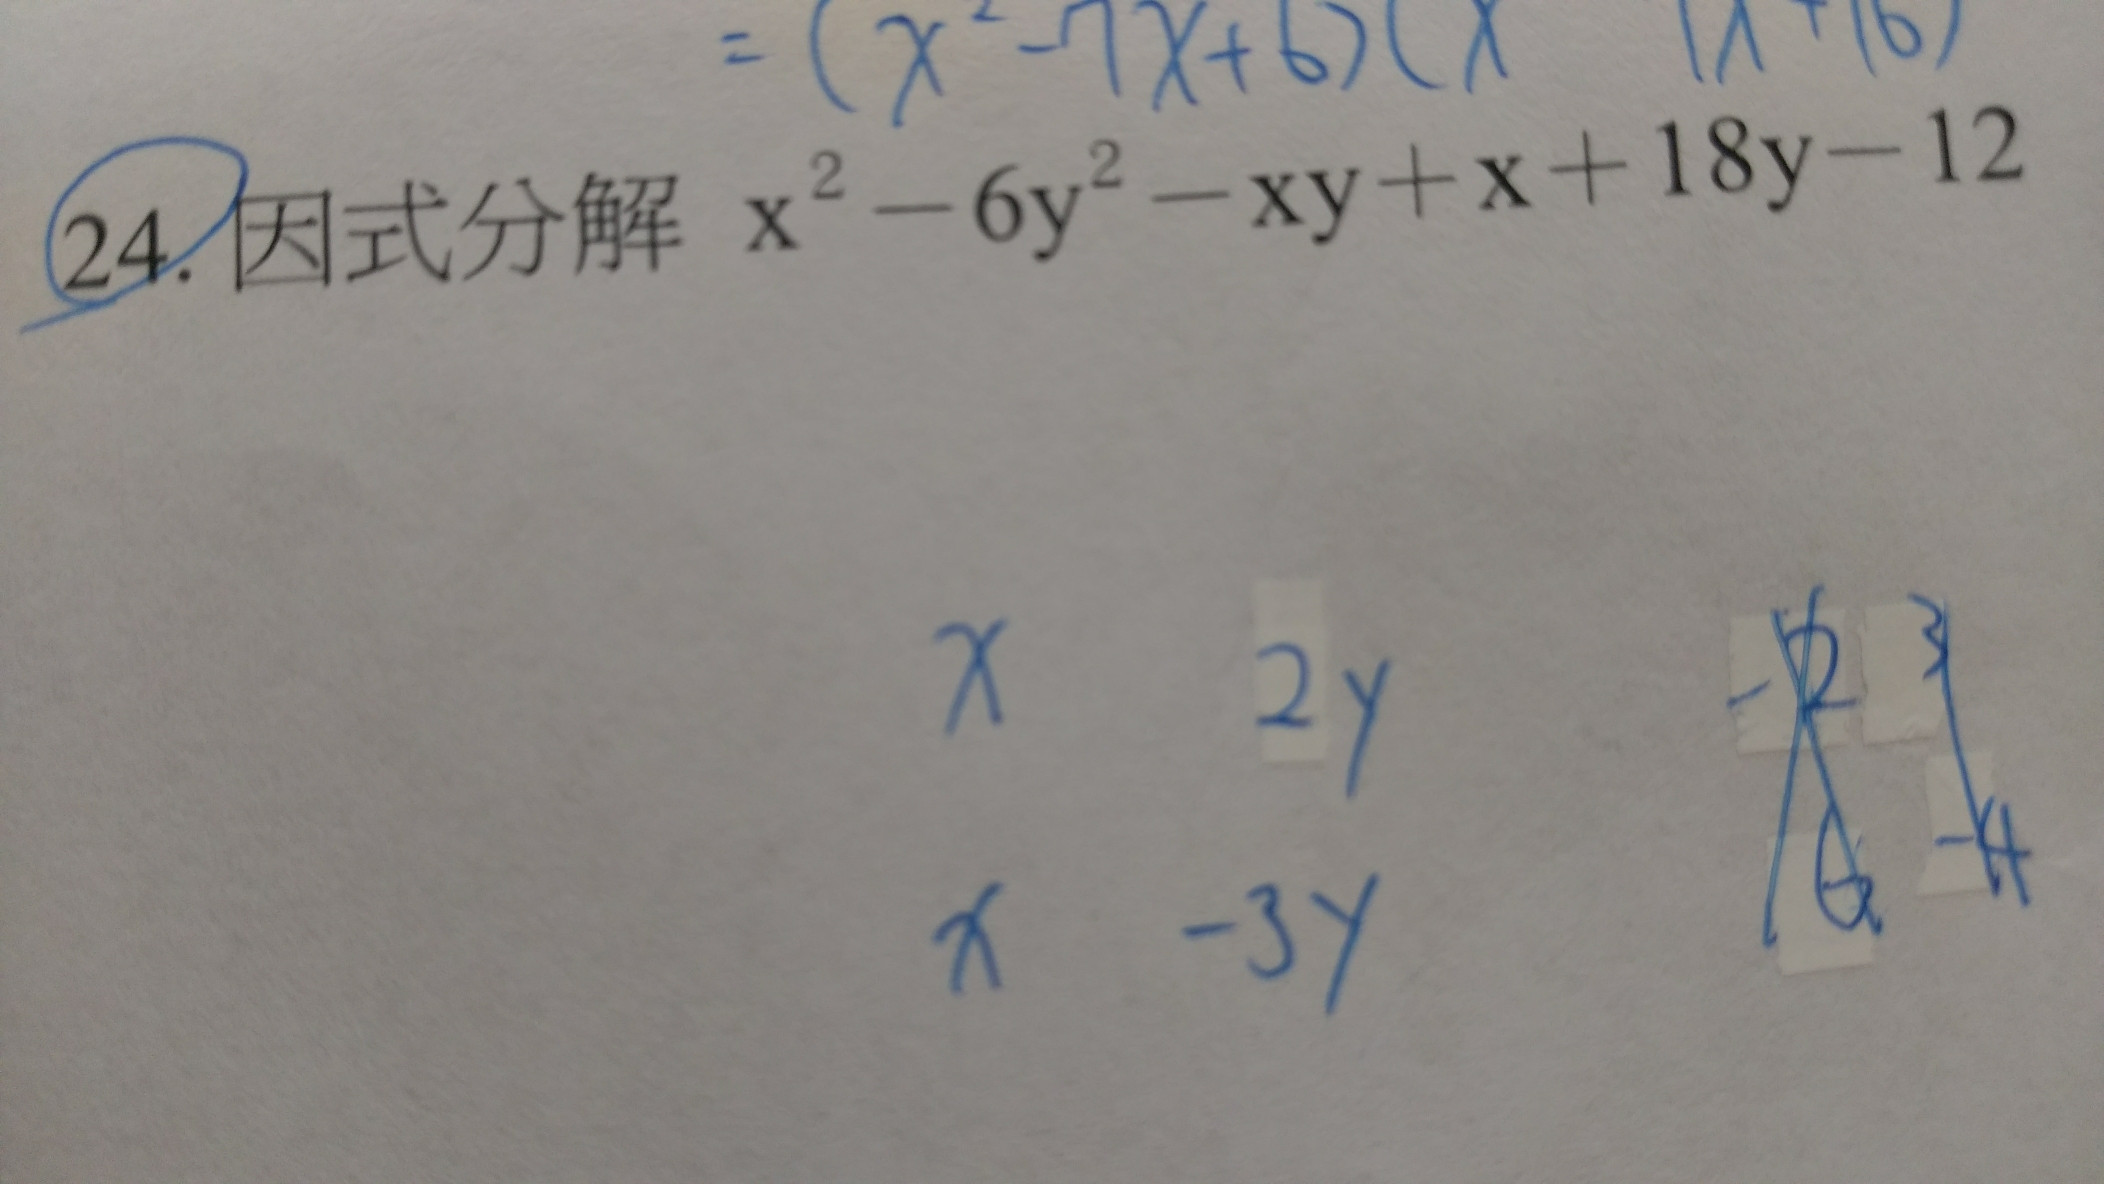 = (x²-7x+6)(x
24. 因式分解 x²-6y²-xy+x+18y-12
x 2y
x -3y -4